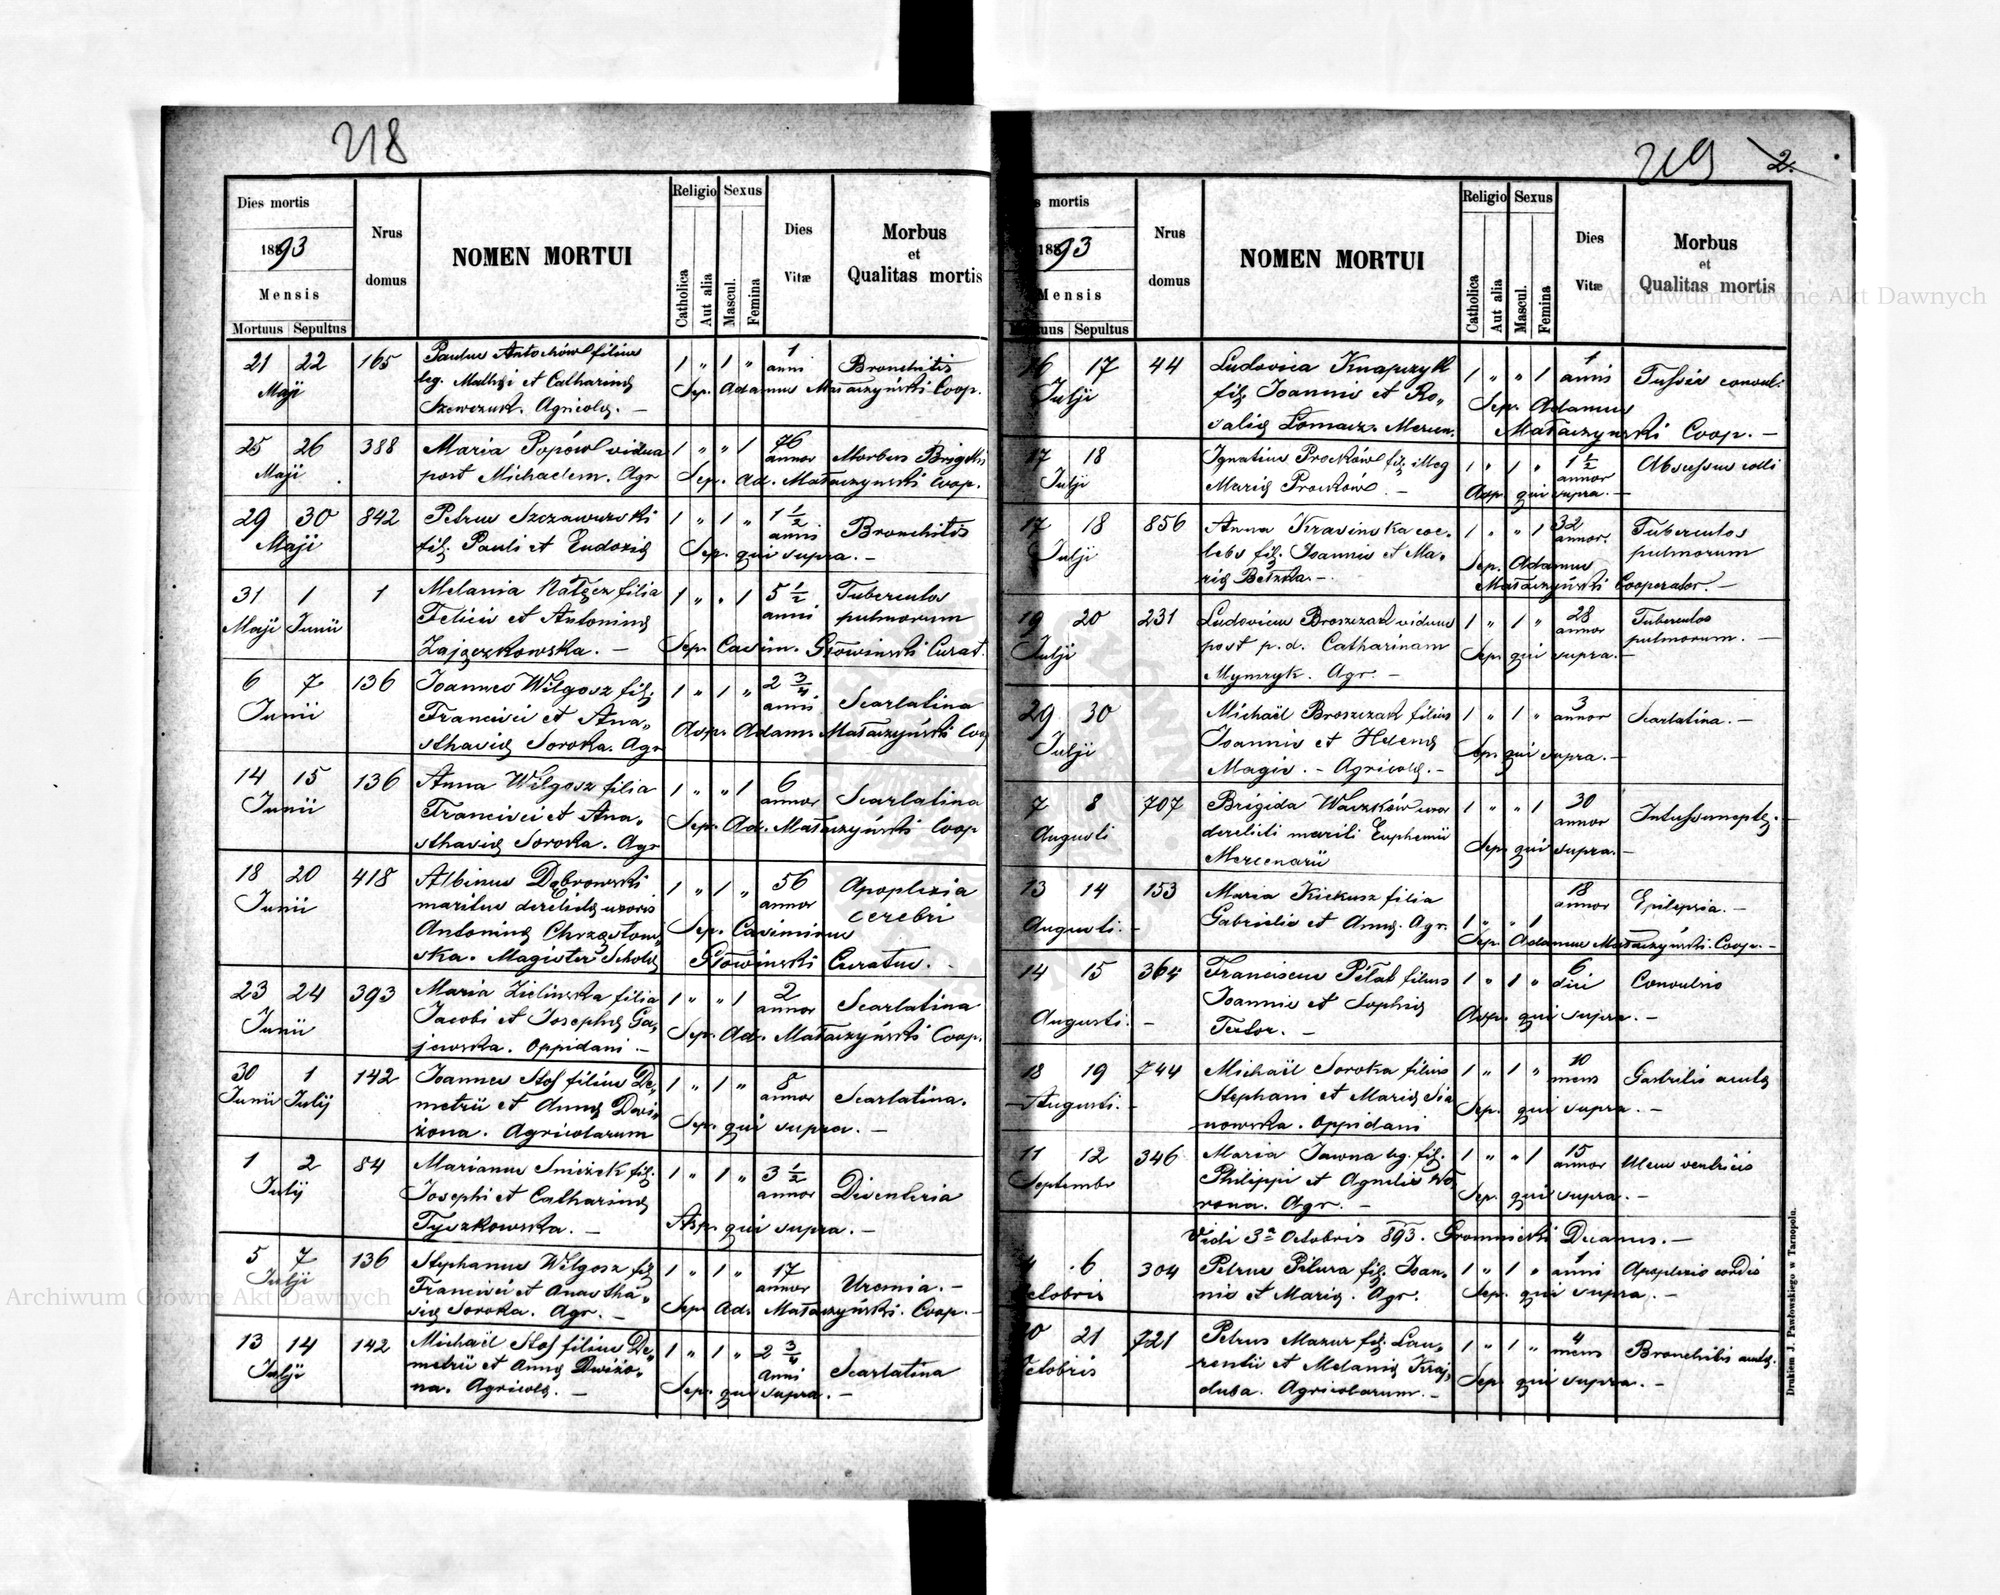 218
Dies mortis
1893
Mensis
Mortuus Sepultus
Nrus
domus
NOMEN MORTUI
Religio
Catholica
Aut alia
Sexus
Mascul.
Femina
Dies
Vitæ
Morbus
et
Qualitas mortis
21 22 165 Paulus Antochów filius 1 " 1 " 1 anni Bronchitis
Maji leg. Mathei et Catharinę Sep. Adamus Małaczyński Coop.
Szewczuk. Agricolę. —
25 26 388 Maria Popów vidua 1 " " 1 76 annor Morbus Brigthi
Maji post Michaelem. Agr Sep. Ad. Małaczynski Coop.
29 30 842 Petrus Szczawurski 1 " 1 " 1 1/2 anni Bronchitis
Maji fil. Pauli et Eudoxię Sep. qui supra. —
31 1 1 Melania Nałęcz filia 1 " " 1 5 1/2 anni Tuberculos
Maji Junii Felicis et Antoninę pulmorum
Zajączkowska. — Sep. Casim. Głowinski Curat.
6 7 136 Joannes Wilgosz fil. 1 " 1 " 2 3/4 anni Scarlatina
Junii Francisci et Ana-
sthasię Soroka. Agr Asp. Adam. Małaczyński Coop
14 15 136 Anna Wilgosz filia 1 " " 1 6 annor Scarlatina
Junii Francisci et Ana-
sthasię Soroka. Agr Sep. Ad. Małaczyński Coop
18 20 418 Albinus Dąbrowski 1 " 1 " 56 annor Apoplexia
Junii maritus derelictę uxoris cerebri
Antoninę Chrząstow- Sep. Casimirus
ska. Magister Scholę Głowinski Curatus. —
23 24 393 Maria Zielinska filia 1 " " 1 2 annor Scarlatina
Junii Jacobi et Josephę Ga-
jewska. Oppidani — Sep. Ad. Małaczyński Coop.
30 1 142 Joannes Stos filius De- 1 " 1 " 8 annor Scarlatina.
Junii Julij metrii et Annę Dwi-
żona. Agricolarum Sep. qui supra. —
1 2 84 Marianus Sniżek fil. 1 " 1 " 3 1/2 annor Disenteria
Julij Josephi et Catharinę
Tyszkowska. — Asp. qui supra. —
5 7 136 Stephanus Wilgosz fil 1 " 1 " 17 annor Uremia. —
Julji Francisci et Anastha-
się Soroka. Agr. — Sep. Ad. Małaczyński. Coop. —
13 14 142 Michaël Stos filius De- 1 " 1 " 2 3/4 anni Scarlatina
Julji metrii et Annę Dwiżo-
na. Agricolę. — Sep. qui supra. —
219 2.
s mortis
1893
Mensis
Mortuus Sepultus
Nrus
domus
NOMEN MORTUI
Religio
Catholica
Aut alia
Sexus
Mascul.
Femina
Dies
Vitæ
Morbus
et
Qualitas mortis
16 17 44 Ludovica Knapczyk 1 " " 1 1 anni Tussis convuls.
Julji fil. Joannis et Ro- Sep. Adamus
salię Lomacz. Mercen. Małaczynski Coop. —
17 18 Ignatius Prockόw fil. illeg 1 " 1 " 1 1/2 annor Abscessus colli
Julji Marię Prockόw. — Asp. qui supra. —
17 18 856 Anna Krasinska coe- 1 " " 1 32 annor. Tuberculos
Julji lebs fil. Joannis et Ma- Sep. Adamus pulmorum
rię Betzka. — Małaczyński Cooperator. —
19 20 231 Ludovicus Broszczak viduus 1 " 1 " 28 annor Tuberculos
Julji post p. d. Catharinam Sep. qui supra. — pulmorum. —
Mymryk. Agr. —
29 30 Michaël Broszczak filius 1 " 1 " 3 annor Scarlatina. —
Julji Joannis et Helenę Sep. qui supra. —
Magis. — Agricolę. —
7 8 707 Brigida Waczków uxor 1 " " 1 30 annor Intussuscepte. —
Augusti derelicti mariti Euphemii
Mercenarii Sep. qui supra. —
13 14 153 Maria Kiekusz filia 1 " " 1 18 annor Epilepsia. —
Augusti. — Gabrielis et Annę. Agr. Sep. Adamus Małaczyński. Coop. —
14 15 364 Franciscus Piłat filius 1 " 1 " 6 diei Convulsio
Augusti. — Joannis et Sophię
Textor. — Asp. qui supra. —
18 19 744 Michaël Soroka filius 1 " 1 " 10 mens Gastritis acuta
— Augusti. — Stephani et Marię Sia-
nowska. Oppidani Sep. qui supra. —
11 12 346 Maria Jawna lg. fil. 1 " " 1 15 annor Ulcus ventricis
Septembr Philippi et Agnetis Wo-
rona. Agr. — Sep. qui supra. —
Vidi 3a Octobris 893. Gromnicki Decanus. —
4 6 304 Petrus Pitura fil. Joan- 1 " 1 " 1 anni Apoplexio cordis
ctobris nis et Marię. Agr. Sep. qui supra. —
20 21 721 Petrus Mazur fil. Lau- 1 " 1 " 4 mens Bronchitis acuta.
ctobris rentii et Melanię Kraj-
dusa. Agricolarum. — Sep. qui supra. —
Drukiem J. Pawłowskiego w Tarnopolu.
Archiwum Główne Akt Dawnych
Archiwum Główne Akt Dawnych